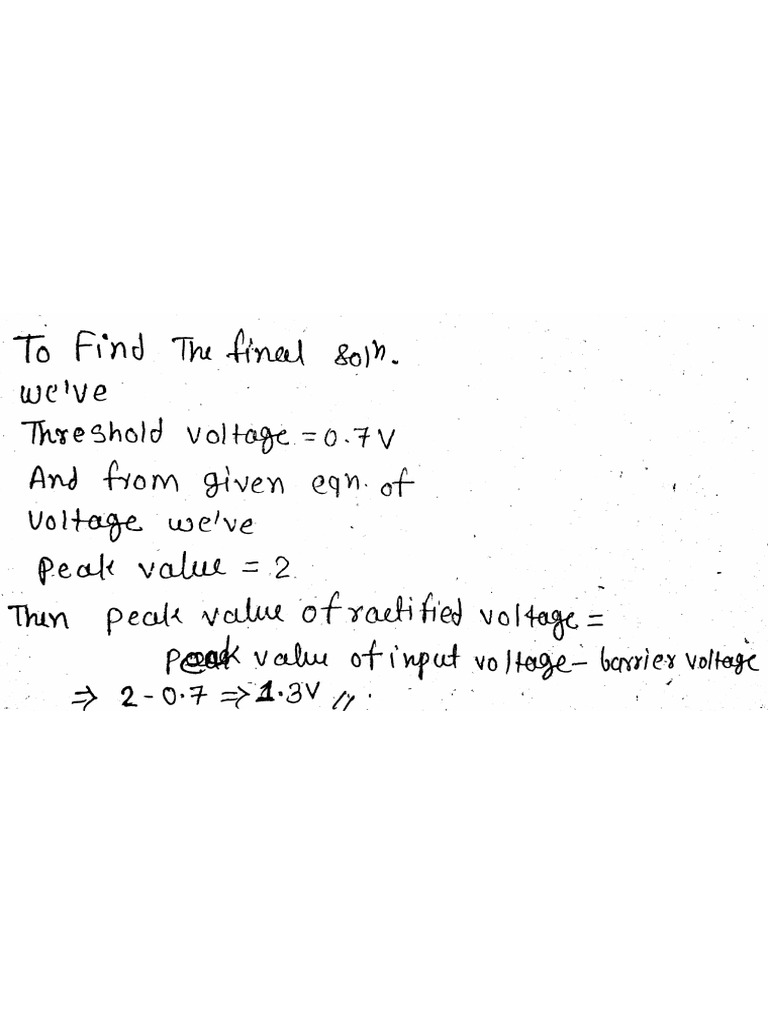 To Find The fineal soln.
we've
Threshold voltage = 0.7V
And from given eqn. of
Voltage we've
peak value = 2
Then peak value of ractified voltage =
peak value of input voltage - barrier voltage
⇒ 2 - 0.7 ⇒ 1.3V //.